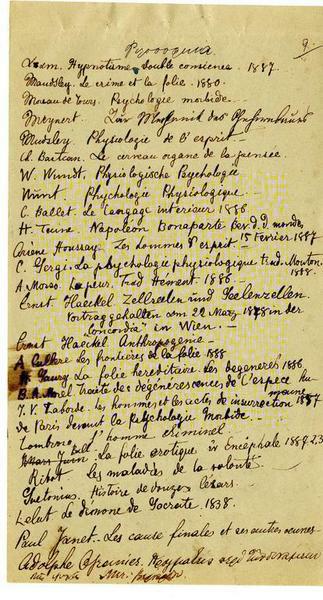 9.
Azam. Hypnotisme double consience. 1887.
Maudsley. Le crime et la folie. 1880.
Moreau de Tours. Psychologie morbide.
Meynert
Mudsley. Physiologie de l'esprit —
Ch. Bastian. Le cerveau organe de la pensée.
W. Wundt. Physiologische Psychologie
Wundt. Phychologie Physiologique
G. Ballet. Le langage interieur 1886
H. Taine. Napoleon Bonaparte Rev. d. d. mondes
Arsène Houssay. Les hommes d'esprit. 15 Fevrier 1887
C. Sergi. La phychologie physiologique trad. Mouton. 1888.
A. Mosso. La peur. Trad Hement. 1886 —
Ernst Haeckel Zellseelen und Seelenzellen
Vortrag gehalten am 22 März 1878 in der
"Concordia" in Wien. —
Ernst Haeckel Anthropogenie —
A. Cullere Les frontieres de la folie 1888
La folie hereditaire. Les degenerés 1886
B. A. Morel traité des dégénérescences de l'espece humaine
J. V. Laborde. Les hommes et les actes de insurrection 1887
de Paris devant la Psychologie Morbide. —
Lombroso l'homme criminel
Ball La folie erotique in Encéphale 1887,23
Ribot. Les maladies de la volonté
Suetonius. Histoire de douze Césars.
Lelut Le démone de Socrate. 1838.
Paul Janet. Les cause finales et ses autres oeuvres —
Adolphe